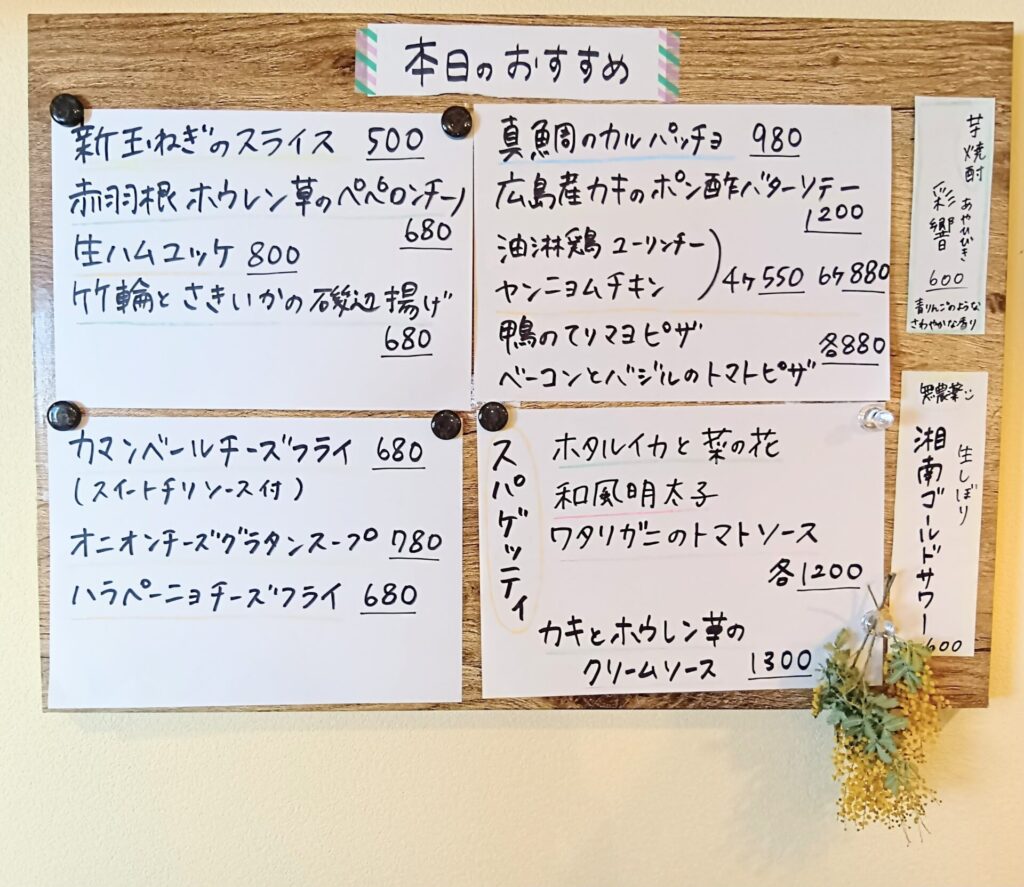 本日のおすすめ
新玉ねぎのスライス 500
赤羽根 ホウレン草のペペロンチーノ
680
生ハムユッケ 800
竹輪とさきいかの磯辺揚げ
680
真鯛のカルパッチョ 980
広島産カキのポン酢バターソテー
1200
油淋鶏 ユーリンチー
ヤンニョムチキン
4ケ550 6ケ880
鴨のてりマヨピザ
各880
ベーコンとバジルのトマトピザ
カマンベールチーズフライ 680
(スイートチリソース付)
オニオンチーズグラタンスープ 780
ハラペーニョチーズフライ 680
スパゲッティ
ホタルイカと菜の花
和風明太子
ワタリガニのトマトソース
各1200
カキとホウレン草の
クリームソース 1300
芋焼酎
あやひびき
彩響
600
青りんごのような
さわやかな香り
無農薬
生しぼり
湘南ゴールドサワー
600